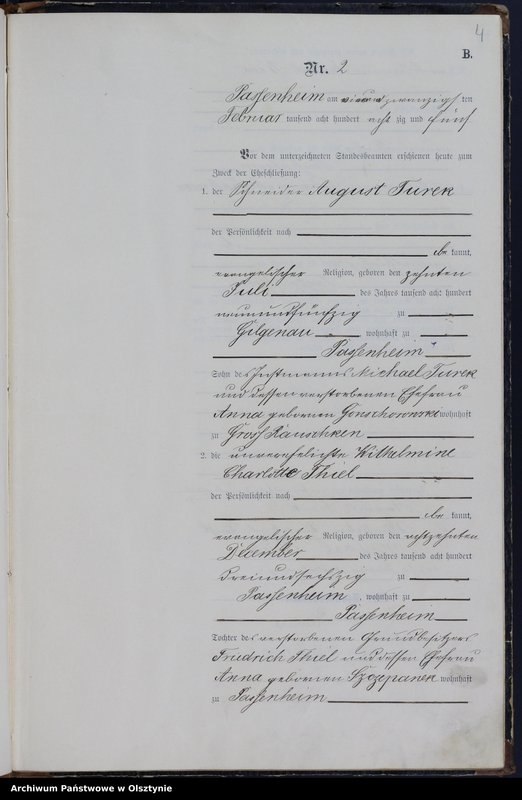 4
B.
Nr. 2
Passenheim am vierundzwanzigsten
Februar tausend acht hundert achtzig und fünf
Vor dem unterzeichneten Standesbeamten erschienen heute zum
Zweck der Eheschließung:
1. der Schneider August Turek
der Persönlichkeit nach
be kannt,
evangelischer Religion, geboren den zehnten
Juli des Jahres tausend acht hundert
neunundfünfzig zu
Gilgenau wohnhaft zu
Passenheim
Sohn des Instmanns Michael Turek
und dessen verstorbenen Ehefrau
Anna geborenen Gonschorowska wohnhaft
zu Gross Rauschken
2. die unverehelichte Wilhelmine
Charlotte Thiel
der Persönlichkeit nach
be kannt,
evangelischer Religion, geboren den achtzehnten
December des Jahres tausend acht hundert
dreiundsechszig zu
Passenheim, wohnhaft zu
Passenheim
Tochter des verstorbenen Grundbesitzers
Friedrich Thiel und dessen Ehefrau
Anna geborenen Szczepanek wohnhaft
zu Passenheim
Archiwum Państwowe w Olsztynie